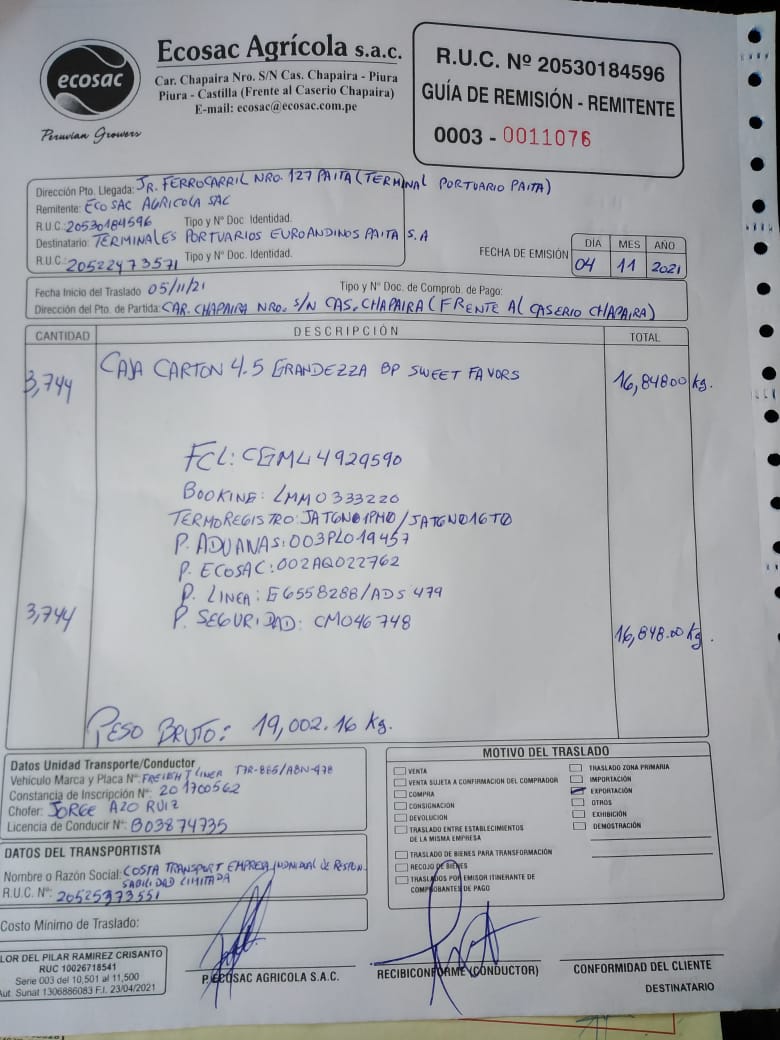 ecosac
Peruvian Growers
Ecosac Agrícola s.a.c.
Car. Chapaira Nro. S/N Cas. Chapaira - Piura
Piura - Castilla (Frente al Caserio Chapaira)
E-mail: ecosac@ecosac.com.pe
R.U.C. Nº 20530184596
GUÍA DE REMISIÓN - REMITENTE
0003 - 0011076
Dirección Pto. Llegada: JR. FERROCARRIL NRO. 127 PAITA (TERMINAL PORTUARIO PAITA)
Remitente: ECOSAC AGRICOLA SAC
R.U.C.: 20530184596 Tipo y Nº Doc. Identidad.
Destinatario: TERMINALES PORTUARIOS EUROANDINOS PAITA S.A
R.U.C.: 20522473571 Tipo y Nº Doc. Identidad.
FECHA DE EMISIÓN
DÍA MES AÑO
04 11 2021
Fecha Inicio del Traslado 05/11/21 Tipo y No Doc. de Comprob. de Pago:
Dirección del Pto. de Partida: CAR. CHAPAIRA NRO. S/N CAS. CHAPAIRA (FRENTE AL CASERIO CHAPAIRA)
CANTIDAD DESCRIPCIÓN TOTAL
3,744 CAJA CARTON 4.5 GRANDEZZA BP SWEET FAVORS 16,848.00 kg.
FCL: CGMU4929590
BOOKING: LMM0333220
TERMOREGISTRO: JATGN01PM0/JATGN01GT0
P. ADUANAS: 003PL019457
P. ECOSAC: 002AQ022762
P. LINEA: G6558288/ADS 479
3,744 P. SEGURIDAD: CM046748 16,848.00 kg.
PESO BRUTO: 19,002.16 kg.
Datos Unidad Transporte/Conductor
Vehículo Marca y Placa Nº: FREIGHTLINER T7R-865/ABN-478
Constancia de Inscripción Nº: 201700562
Chofer: JORGE AZO RUIZ
Licencia de Conducir Nº: B03874735
DATOS DEL TRANSPORTISTA
Nombre o Razón Social: COSTA TRANSPORT EMPRESA INDIVIDUAL DE RESPON
SABILIDAD LIMITADA
R.U.C. Nº: 20525373551
Costo Mínimo de Traslado:
MOTIVO DEL TRASLADO
VENTA
VENTA SUJETA A CONFIRMACIÓN DEL COMPRADOR
COMPRA
CONSIGNACIÓN
DEVOLUCIÓN
TRASLADO ENTRE ESTABLECIMIENTOS
DE LA MISMA EMPRESA
TRASLADO DE BIENES PARA TRANSFORMACIÓN
RECOJO DE BIENES
TRASLADOS POR EMISOR ITINERANTE DE
COMPROBANTES DE PAGO
TRASLADO ZONA PRIMARIA
IMPORTACIÓN
EXPORTACIÓN
OTROS
EXHIBICIÓN
DEMOSTRACIÓN
LOR DEL PILAR RAMIREZ CRISANTO
RUC 10026718541
Serie 003 del 10,501 al 11,500
Aut. Sunat 1306886083 F.I. 23/04/2021
P. ECOSAC AGRICOLA S.A.C.
RECIBI CONFORME (CONDUCTOR)
CONFORMIDAD DEL CLIENTE
DESTINATARIO